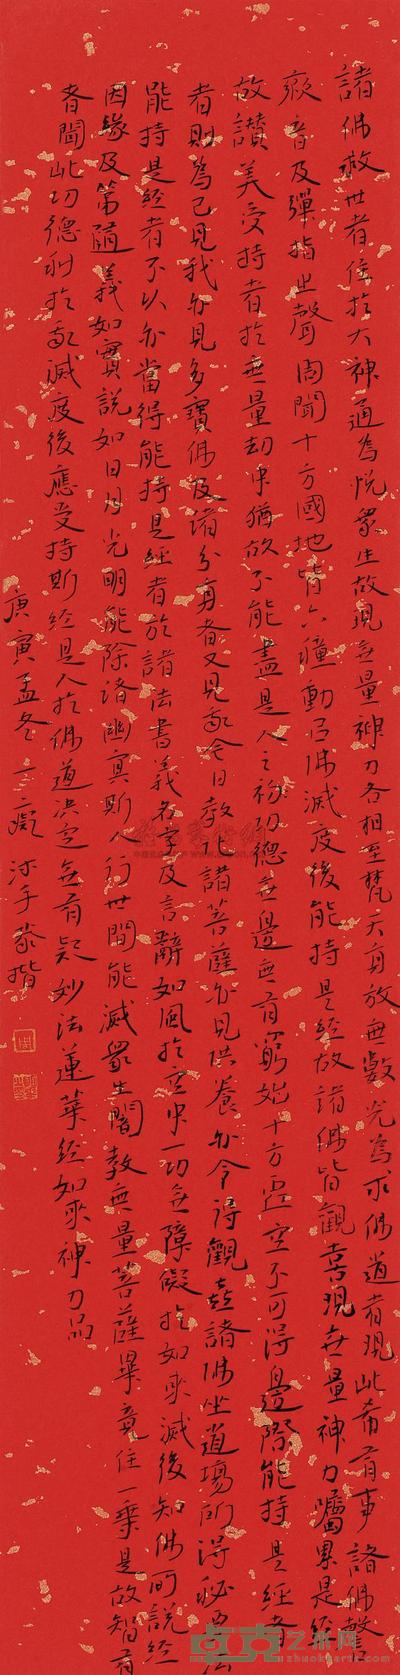 諸佛救世者住於大神通為悅眾生故現無量神力各相至梵天身放無數光為求佛道者現此希有事諸佛聲
欬音及彈指之聲周聞十方國地皆六種動以佛滅度後能持是經故諸佛皆觀喜現無量神力囑累是經
故讚美受持者於無量劫中猶故不能盡是人之初功德無邊無有窮如十方虛空不可得邊際能持是經者
者則為已見我亦見多寶佛及諸分身者又見我今日教化諸菩薩亦見供養亦令得觀喜諸佛坐道場所得秘要法
能持是經者不以亦當得能持是經者於諸法書義名字及言辭如風於空中一切無障礙於如來滅後知佛所說經
因緣及第隨義如實說如日月光明能除諸幽冥斯人行世間能滅眾生闇教無量菩薩畢竟住一乘是故智有
者聞此功德利於我滅度後應受持斯經是人於佛道決定無有疑妙法蓮華經如來神力品
庚寅孟冬三癡沐手恭楷
卓克艺术网
www.zhuokearts.com